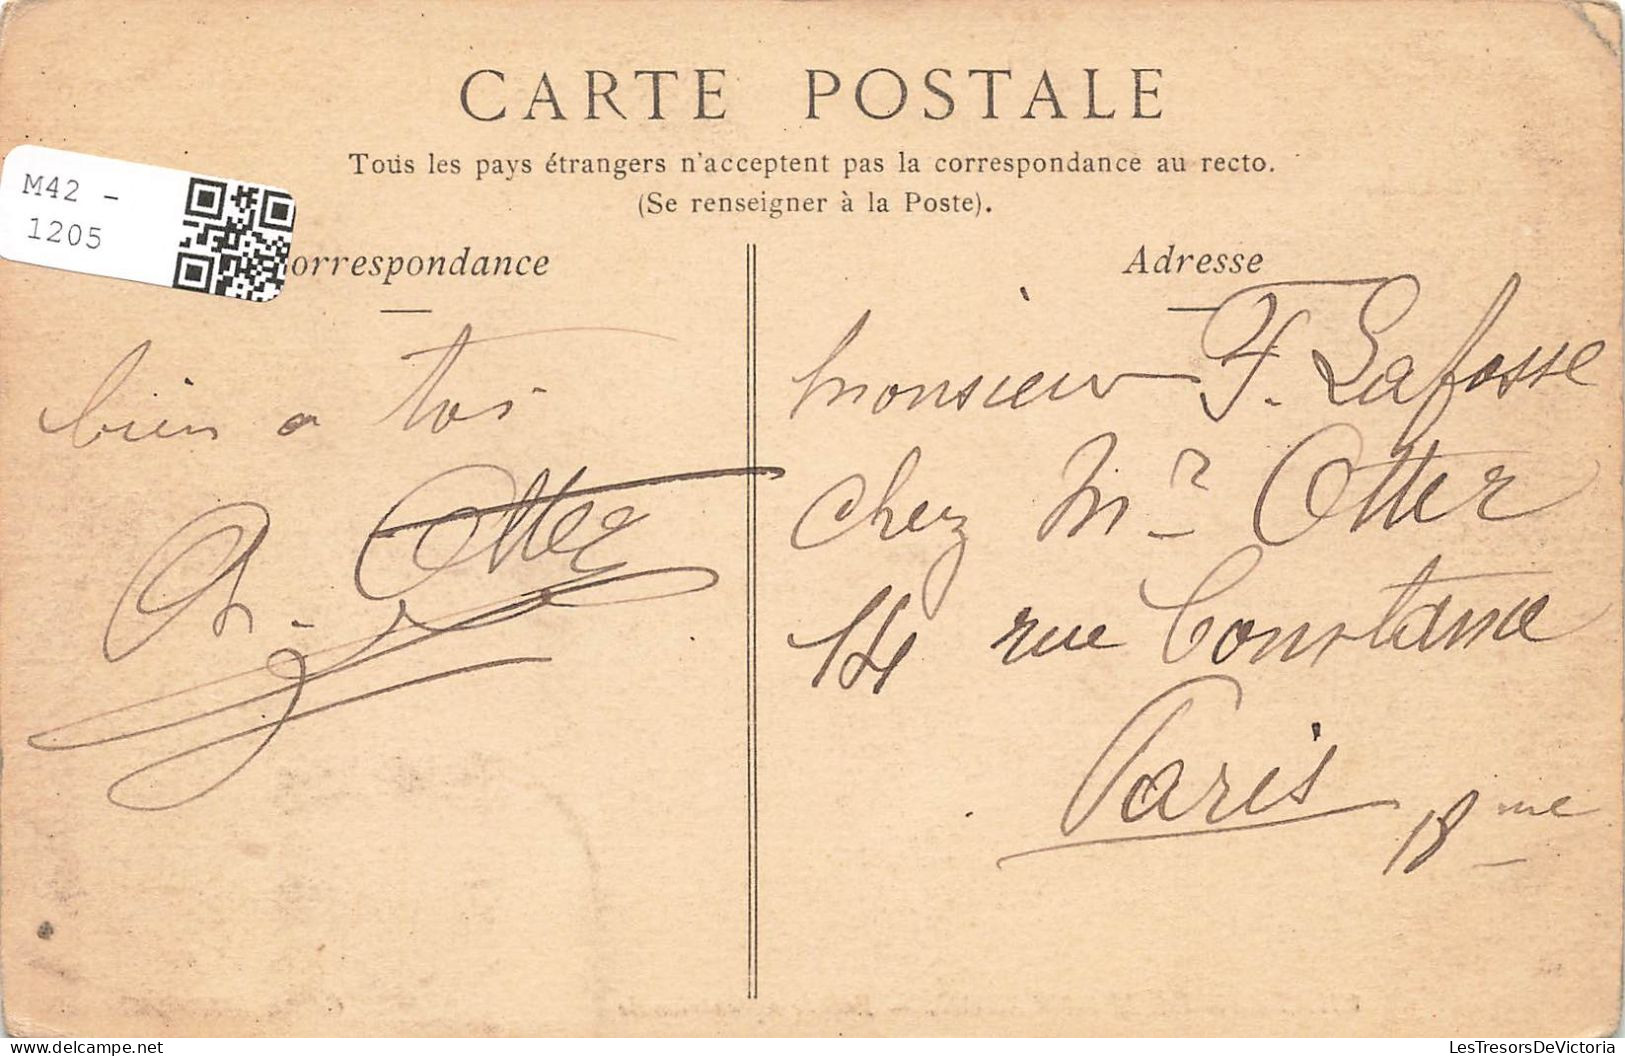 CARTE POSTALE
Tous les pays étrangers n'acceptent pas la correspondance au recto.
(Se renseigner à la Poste).
M42 -
1205
orrespondance
bien a toi
Otter
Adresse
Monsieur F. Lafosse
chez Mr Otter
14 rue Constance
Paris 18me
LesTresorsDeVictoria